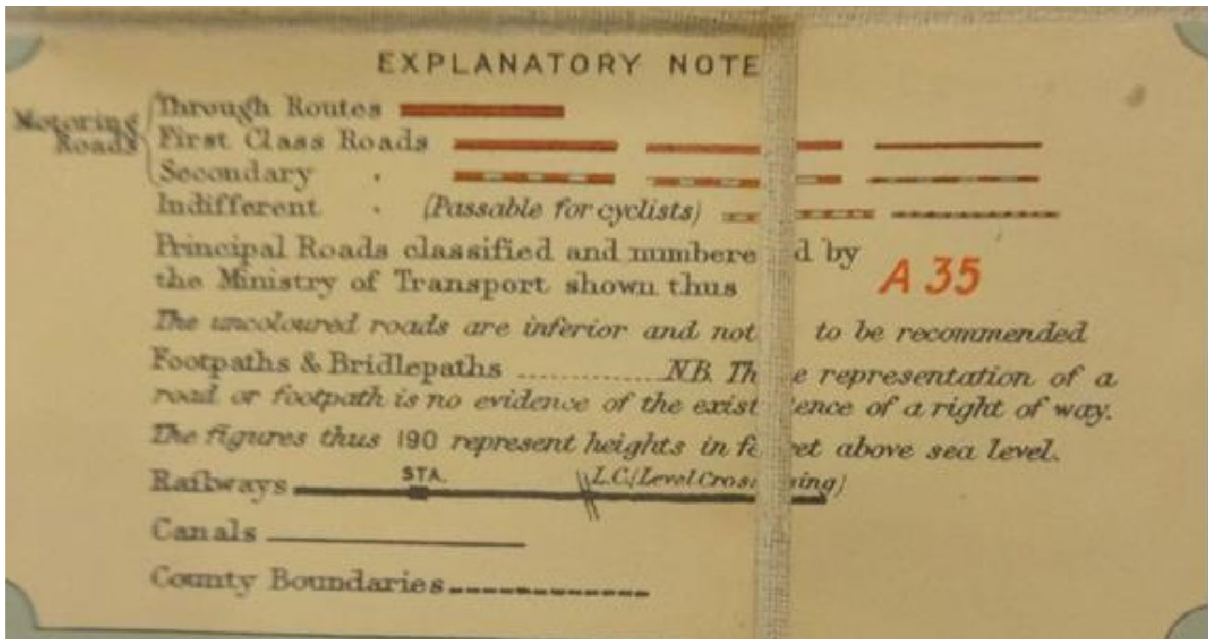 EXPLANATORY NOTE
Motoring Roads
Through Routes
First Class Roads
Secondary "
Indifferent " (Passable for cyclists)
Principal Roads classified and numbered by
the Ministry of Transport shown thus A 35
The uncoloured roads are inferior and not to be recommended
Footpaths & Bridlepaths ............ N.B. The representation of a
road or footpath is no evidence of the existence of a right of way.
The figures thus 190 represent heights in feet above sea level.
Railways STA. L.C. (Level Crossing)
Canals
County Boundaries